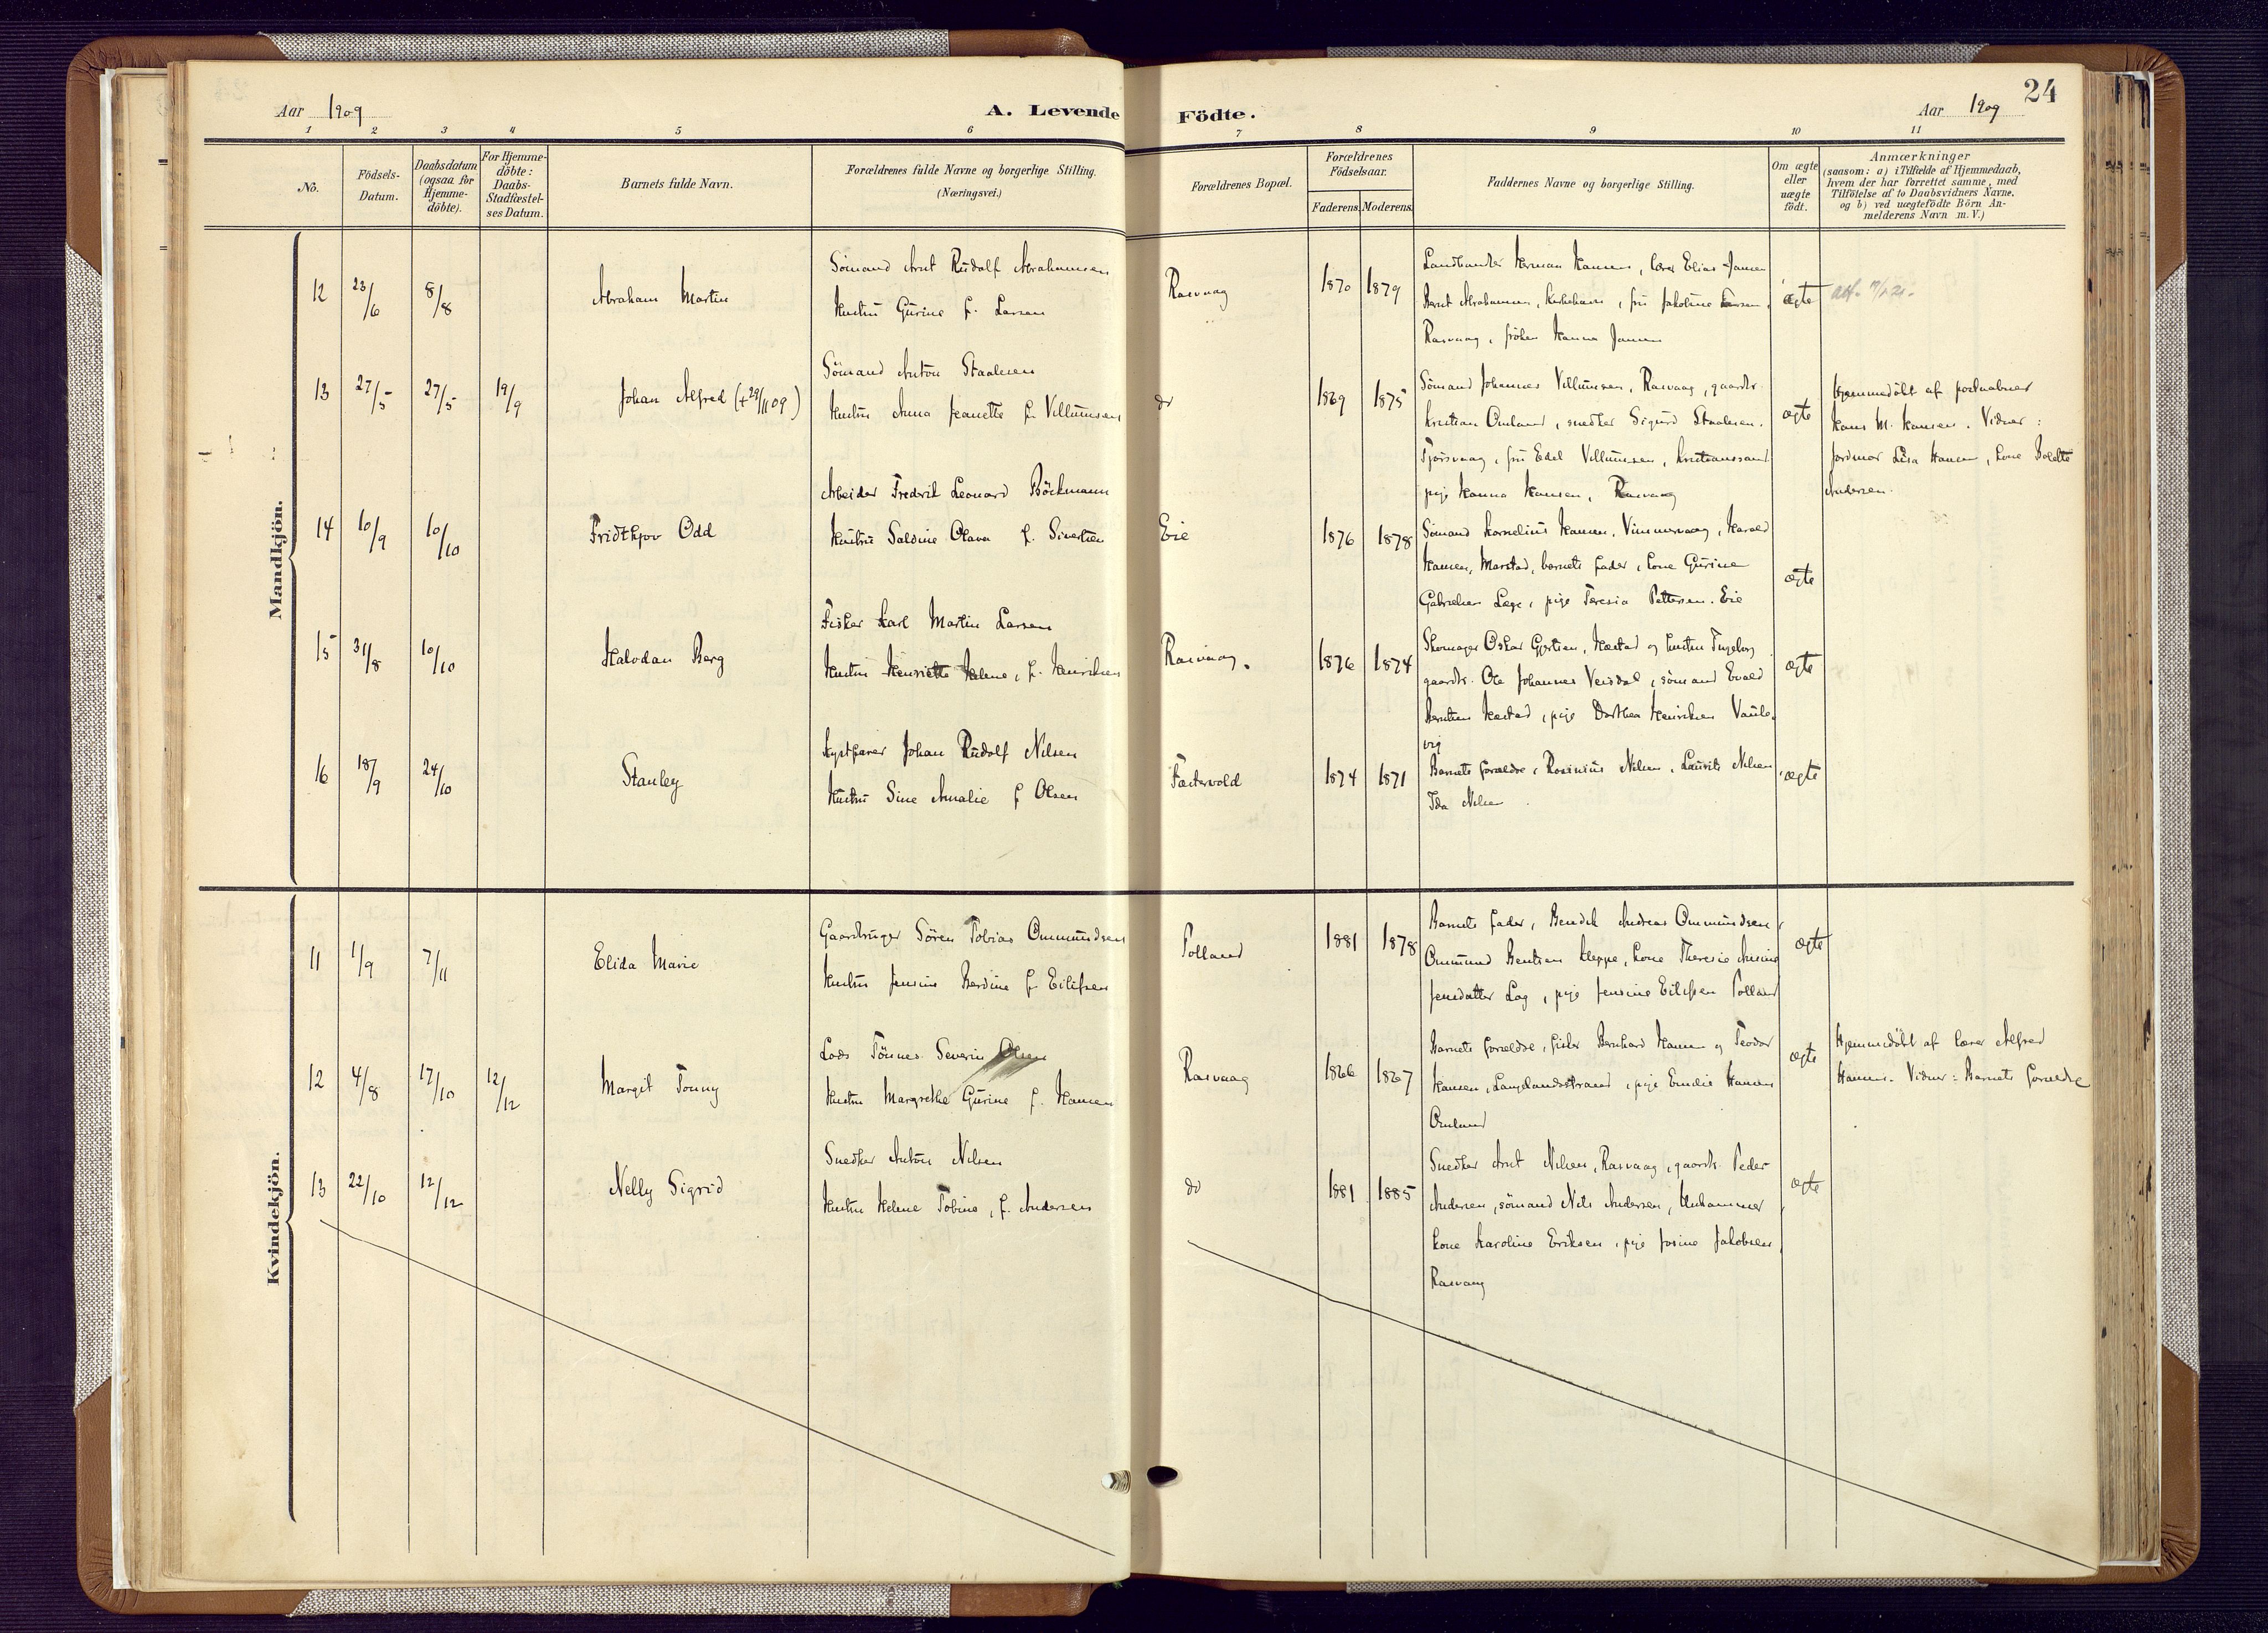 24
Aar 1909
A. Levende Födte.
Aar 1909
1 2 3 4 5 6 7 8 9 10 11
No.
Födsels-
Datum.
Daabsdatum
(ogsaa for
Hjemme-
döbte).
For Hjemme-
döbte:
Daabs-
Stadfæstel-
ses Datum.
Barnets fulde Navn.
Forældrenes fulde Navne og borgerlige Stilling.
(Næringsvei.)
Forældrenes Bopæl.
Forældrenes
Födselsaar.
Faderens. Moderens.
Faddernes Navne og borgerlige Stilling.
Om ægte
eller
uægte
födt.
Anmærkninger
(saasom: a) i Tilfælde af Hjemmedaab,
hvem der har forrettet samme, med
Tilföielse af to Daabsvidners Navne.
og b) ved uægtefödte Börn An-
melderens Navn m. V.)
Mandkjön.
12 23/6 8/8 Abraham Martin
Sömand Arnt Rudolf Abrahamsen
Hustru Gurine f. Larsen
Rasvaag 1870 1879
Landhandler Herman Hansen, lærer Elias Jansen
Bernt Abrahamsen, Kirkehavn, fru Jakobine
Rasvaag, fröken Hanna Jansen
ægte
13 27/5 27/5 19/9 Johan Alfred (+ 29/11 09)
Sömand Anton Staalesen
Hustru Anna Jeanette f. Villumsen
do 1869 1875
Sömand Johannes Villumsen, Rasvaag, gaardbr.
Kristian Omland, snedker Sigurd Staalesen.
Tjorsvaag, fru Edel Villumsen, Kristianssand
pige Hanna Hansen, Rasvaag
ægte
Hjemmedöbt af postaabner
Hans M. Hansen. Vidner:
Jordmor Lisa Hansen, kone Bolette
Andersen.
14 10/9 10/10 Fridthjov Odd
Arbeider Fredrik Leonard Böckmann
Hustru Saldine Olava f. Sivertsen
Eie 1876 1878
Sömand Kornelius Hansen, Vimmervaag, Harald
Hansen, Marstad, barnets fader, kone Gurine
Gabrielsen Lage, pige Teresia Pettersen. Eie
ægte
15 31/8 10/10 Halvdan Berg
Fisker Karl Martin Larsen
Hustru Henriette Helene, f. Henriksen
Rasvaag. 1876 1874
Skomager Oskar Gjertsen, Hæstad og hustru Ingeborg
gaardbr. Ole Johannes Veisdal, sömand Evald
Berntsen Hæstad, pige Dorthea Henriksen Vaule-
vig
ægte
16 18/9 24/10 Stanley
Kystfarer Johan Rudolf Nilsen
Hustru Sine Amalie f Olsen
Fædevold 1874 1871
Barnets forældre, Rosinius Nilsen, Laurits Nilsen
Ida Nilsen
ægte
Kvindekjön.
11 1/9 7/11 Elida Marie
Gaardbruger Sören Tobias Ommundsen
Hustru Jensine Berdine f. Eilifsen
Polland 1881 1878
Barnets fader, Bendik Andreas Ommundsen,
Ommund Bentsen Kleppe, kone Theresie Ansine
Jensdatter Log, pige Jensine Eilifsen Polland
ægte
12 4/8 17/10 12/12 Margit Tonny
Lods Tönnes Severin Olsen
Hustru Margrethe Gurine f. Hansen
Rasvaag 1866 1867
Barnets forældre, fisker Bernhard Hansen og Teodor
Hansen, Langlandsstrand, pige Emelie Hansen
Omland
ægte
Hjemmedöbt af lærer Alfred
Hansen. Vidner: Barnets forældre
13 22/10 12/12 Nelly Sigrid
Snedker Anton Nilsen
Hustru Helene Tobine, f. Andersen
do 1881 1885
Snedker Arnt Nilsen, Rasvaag, gaardbr. Peder
Andersen, sömand Nils Andersen, Urhammer,
kone Karoline Eriksen, pige Josine Jakobsen,
Rasvaag
ægte